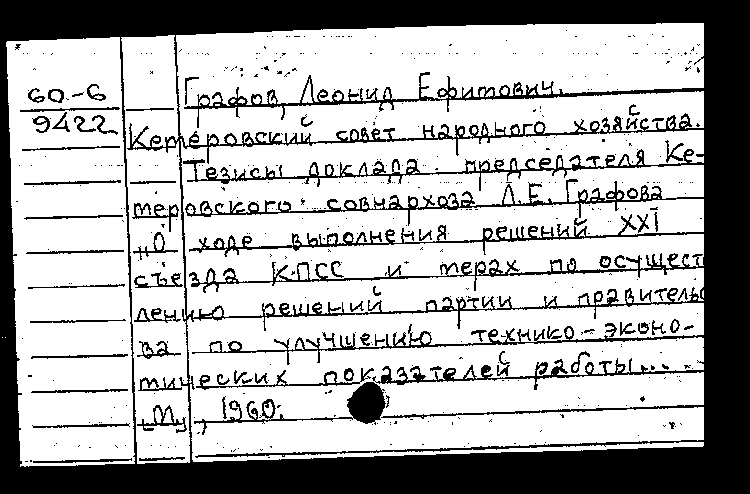 60-6
9422
Графов, Леонид Ефимович.
Кемеровский совет народного хозяйства.
Тезисы доклада председателя Ке-
меровского совнархоза Л.Е. Графова
„О ходе выполнения решений XXI
съезда КПСС и мерах по осущест
лению решений партии и правительс
ва по улучшению технико-эконо-
мических показателей работы...
„М", 1960.